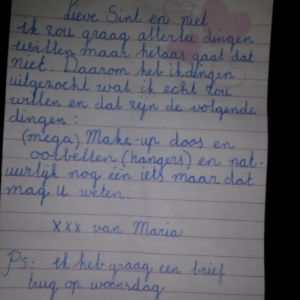 Lieve Sint en piet
ik zou graag allerlei dingen
willen maar helaas gaat dat
niet. Daarom heb ik dingen
uitgezocht wat ik echt zou
willen en dat zijn de volgende
dingen:
(mega) Make-up doos en
oorbellen (hangers) en nat-
uurlijk nog één iets maar dat
mag u weten.
xxx van Maria
Ps: ik heb graag een brief
trug op woensdag